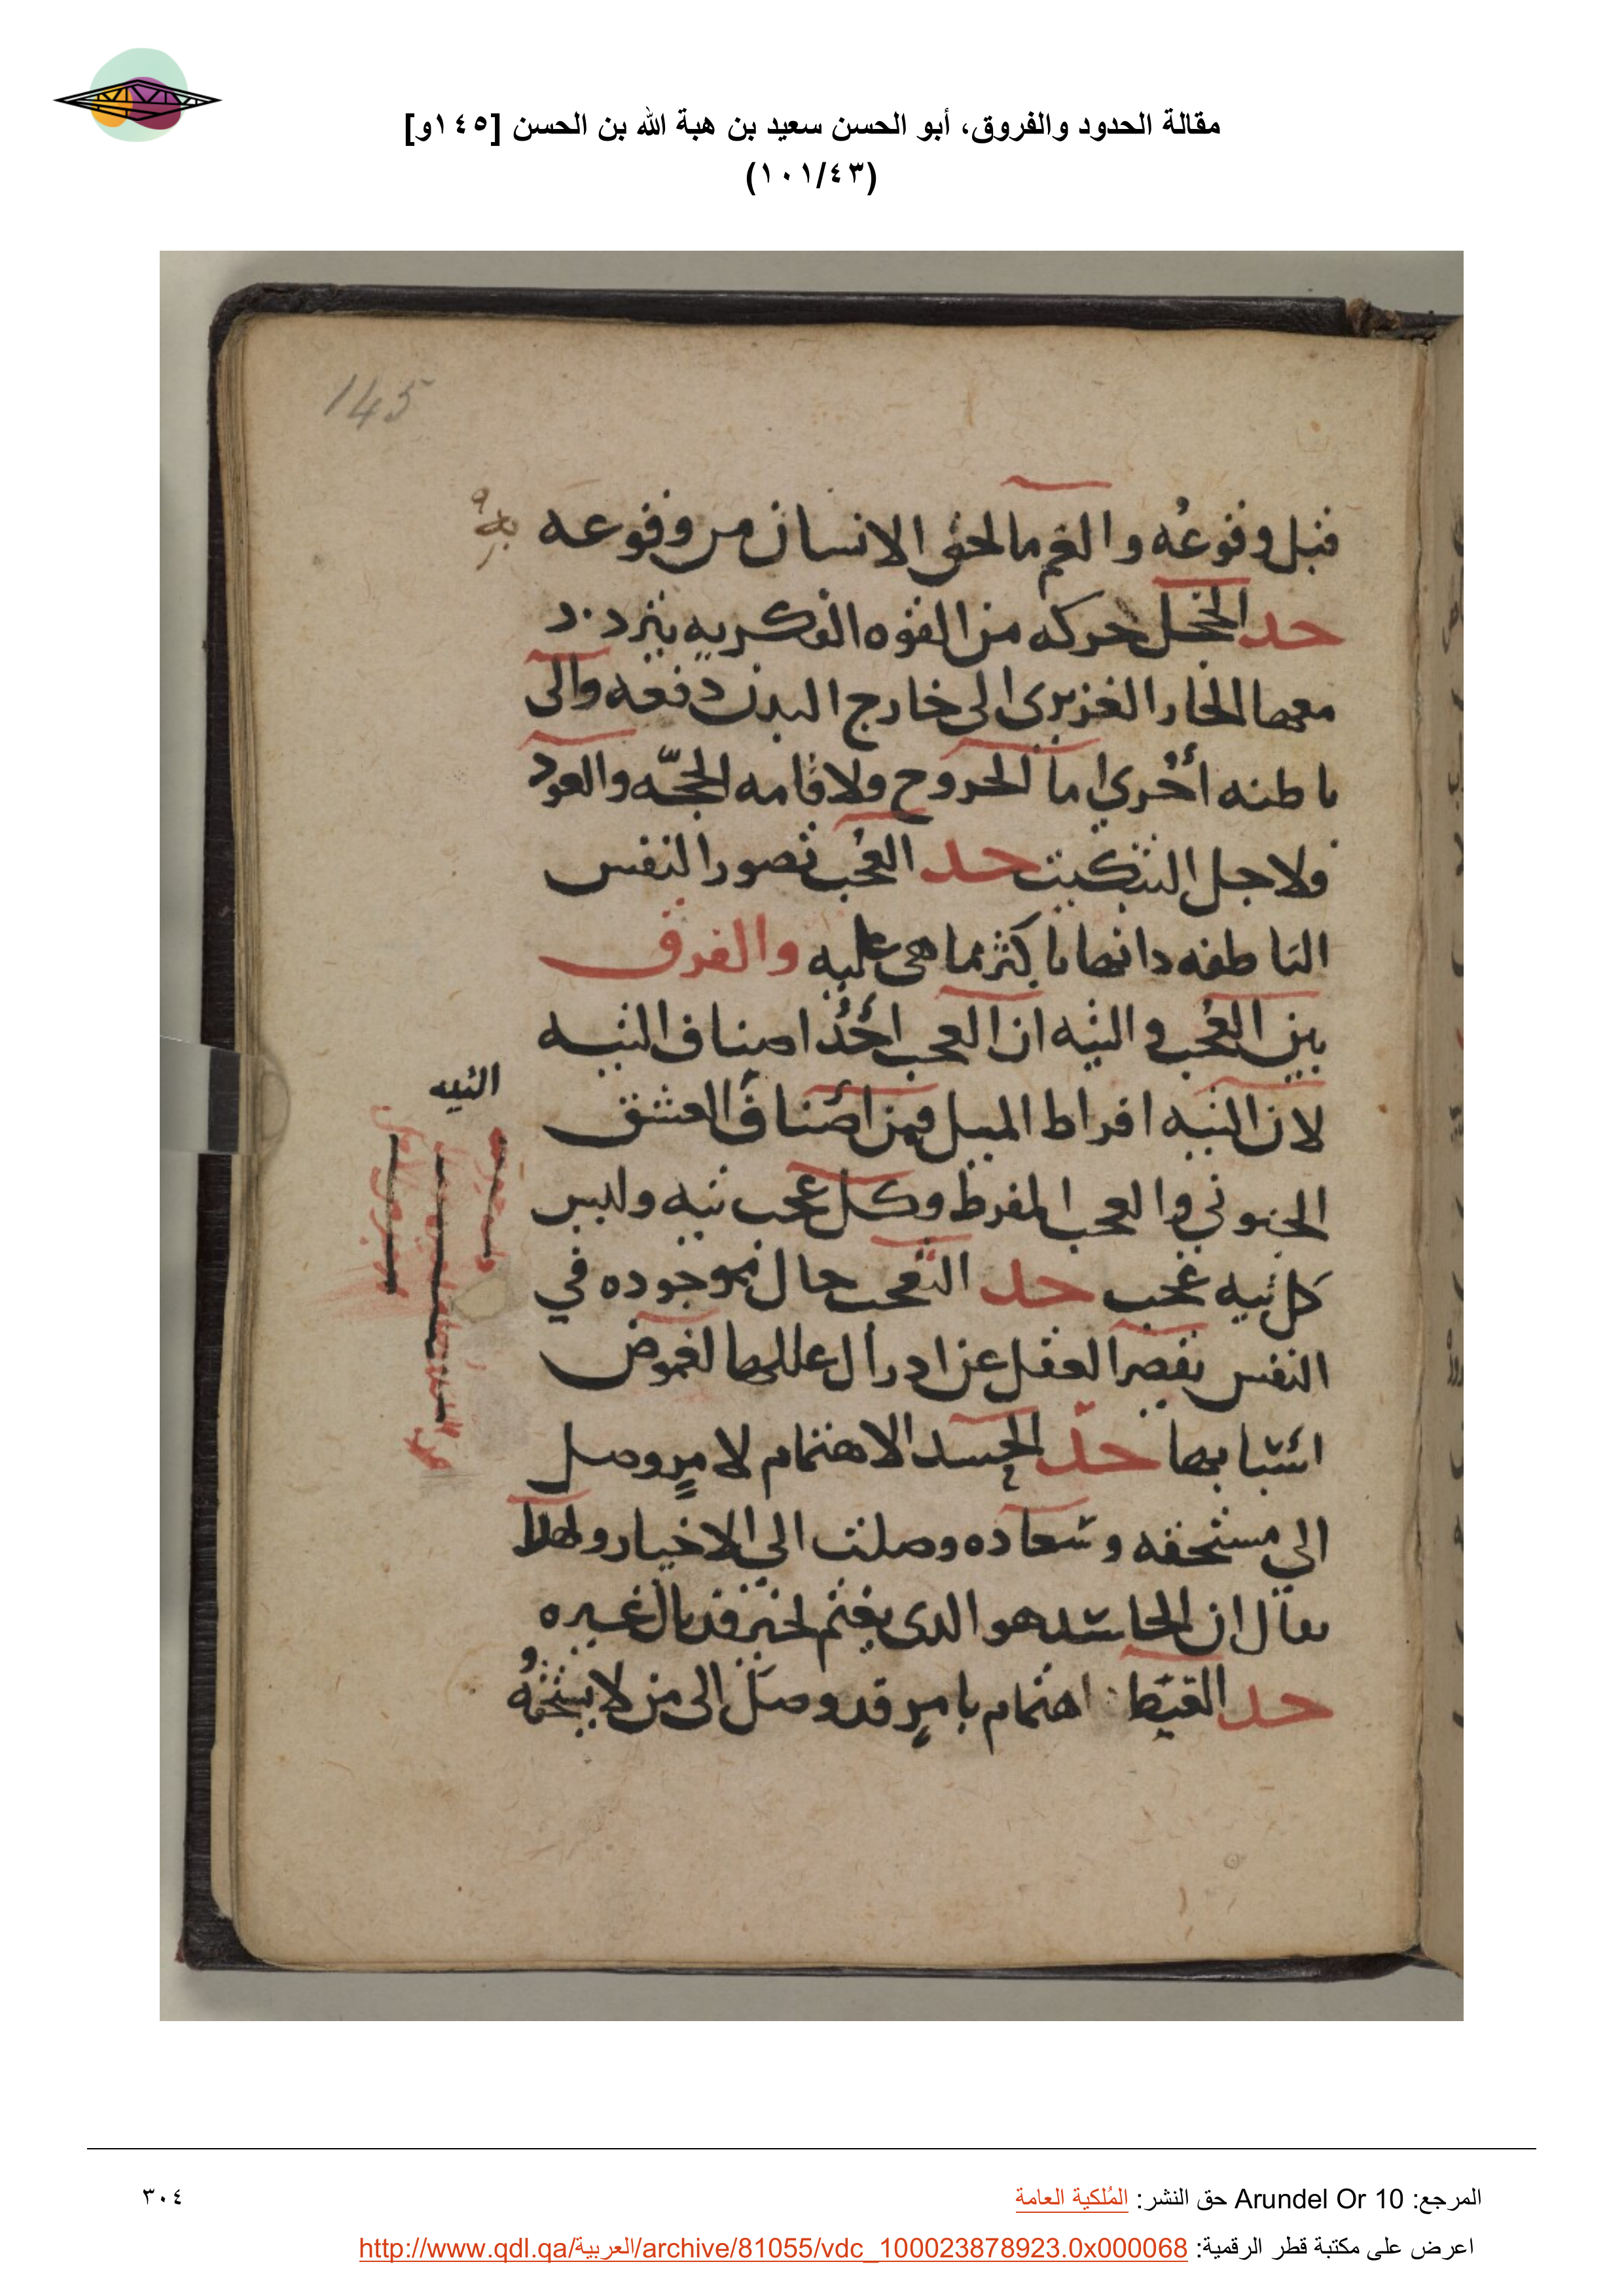 مقالة الحدود والفروق، أبو الحسن سعيد بن هبة الله بن الحسن [١٤٥و]
(١٠١/٤٣)
145
قبل وقوعُه والغم مالحق الانسان من وقوعه
حد الخجل حركه من القوه الفكريه يتردد
معها الحار الغريزى الى خارج البدن دفعه والى
باطنه أخرى اما الخروج ولاقامه الحجّه والعود
فلاجل التبكيت حد العُجب تصور النفس
الناطقه داتها باكثر مما هى عليه والفرق
بين العُجب والتيه ان العجب أحَدُ اصناف التيه
لان التيه افراط الميل فمن أصناف العشق
الجنونى والعجب المفرط وكل عجب تيه وليس
كل تيه عجب حد التعجب حال موجوده في
النفس يقصر العقل عن ادراك عللها لغموض
اسبابها حدّ الحسد الاهتمام لامرٍ وصل
الى مستحقه وسعاده وصلت الى الاخيار ولهذا
يقال ان الحاسد هو الدى يغتم لخير قد نال غيره
حد الغيظ اهتمام بامرٍ قد وصل الى من لا يستحقهُ
التيه
المرجع: Arundel Or 10 حق النشر: المُلكية العامة
٣٠٤
اعرض على مكتبة قطر الرقمية: http://www.qdl.qa/العربية/archive/81055/vdc_100023878923.0x000068